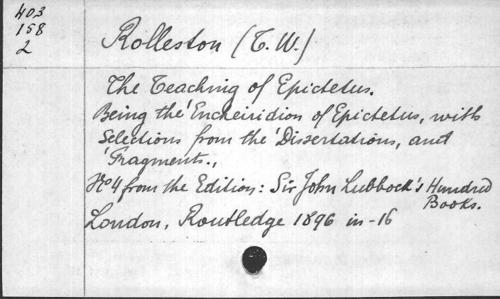 403
158
2
Rolleston (T. W.)
The Teaching of Epictetus.
Being the 'Encheiridion of Epictetus, with
Selections from the 'Dissertations, and
'Fragments.,
No 4 from the Edition: Sir John Lubbock's Hundred
Books.
London, Routledge 1896 in-16